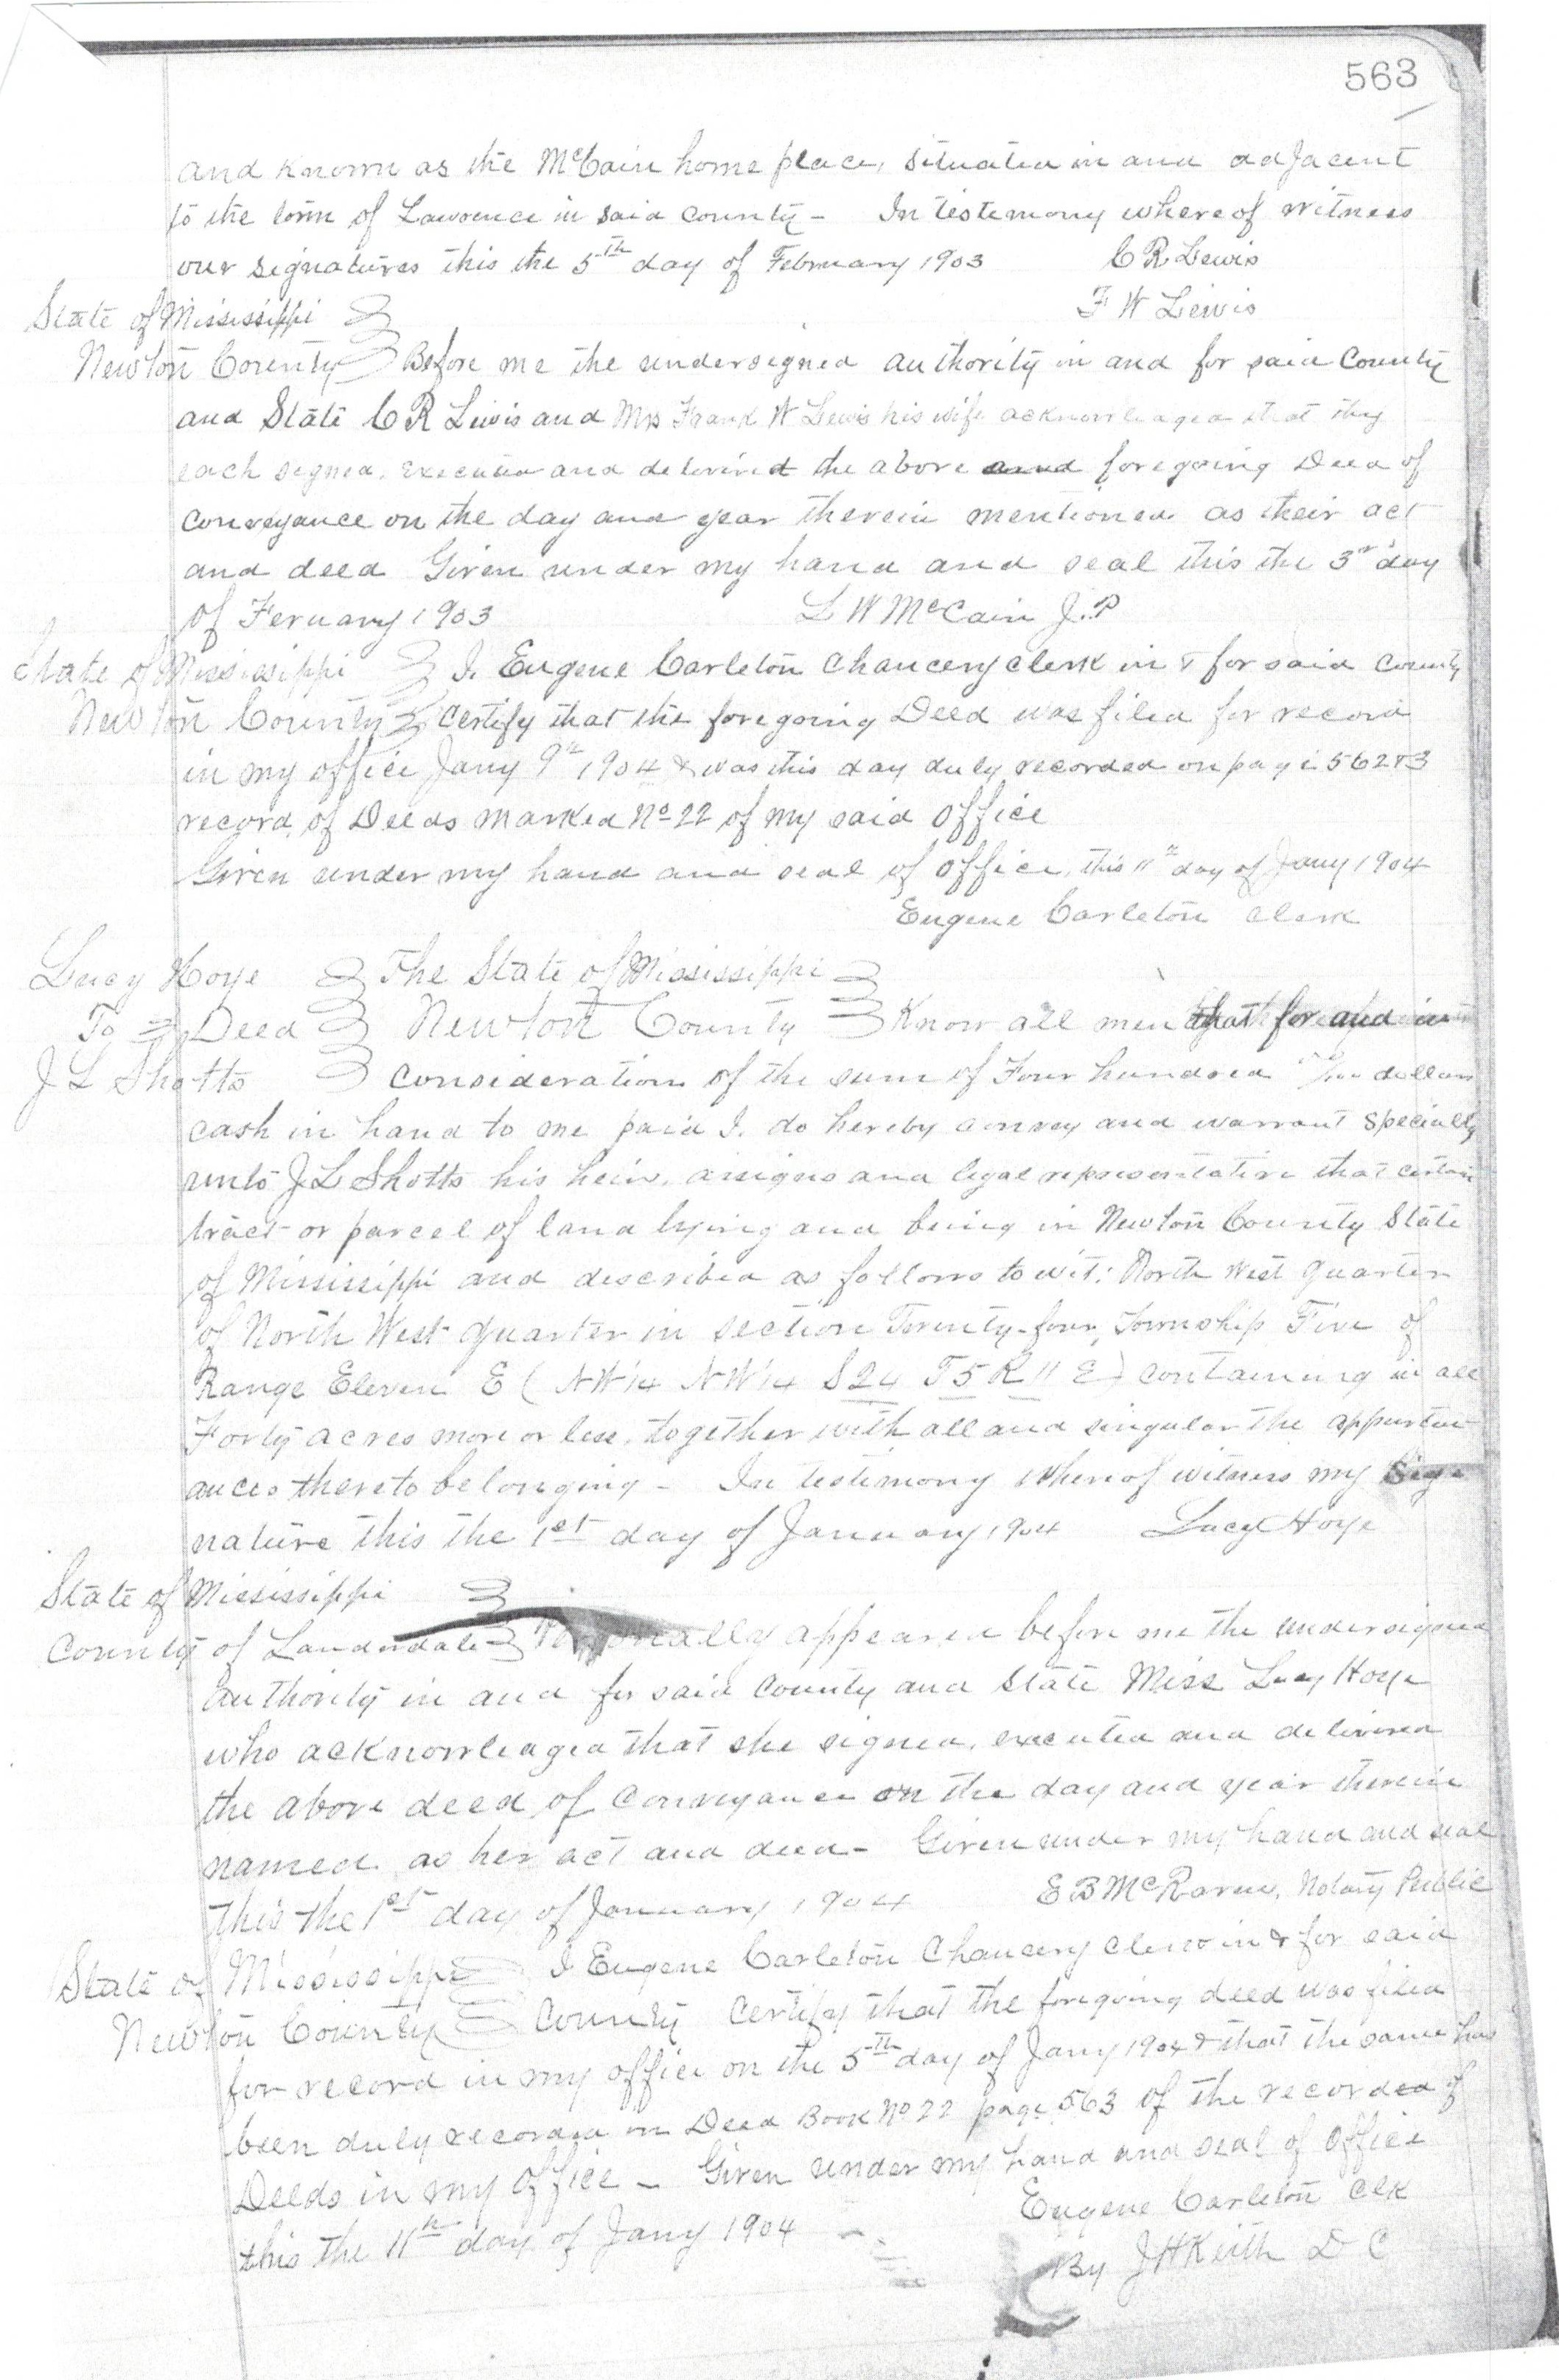 563
and known as the McCain home place, situated in and adjacent
to the town of Lawrence in said county - In testimony whereof witness
our signatures this the 5th day of February 1903 C R Lewis
F W Lewis
State of Mississippi
Newton County Before me the undersigned authority in and for said County
and State C R Lewis and Mrs Frank W Lewis his wife acknowledged that they
each signed, executed and delivered the above and foregoing Deed of
Conveyance on the day and year therein mentioned as their act
and deed Given under my hand and seal this the 3rd day
of Feruary 1903 L W McCain J.P
State of Mississippi I, Eugene Carleton Chancery clerk in & for said County
Newton County Certify that the foregoing Deed was filed for record
in my office Jany 9th 1904 & was this day duly recorded on page 562&3
record of Deeds marked No 22 of my said office
Given under my hand and seal of office, this 11th day of Jany 1904
Eugene Carleton Clerk
Lucy Hoye The State of Mississippi
To Deed Newton County Know all men that for and in
J L Shotts Consideration of the sum of Four hundred dollars
cash in hand to me paid I, do hereby convey and warrant specially
unto J L Shotts his heirs, assigns and legal representative that certain
tract or parcel of land lying and being in Newton County State
of Mississippi and described as follows to wit: North West quarter
of North West quarter in section Twenty-four, Township Five of
Range Eleven E (NW 1/4 NW 1/4 S 24 T5 R 11 E) containing in all
Forty acres more or less, together with all and singular the appurten
ances thereto belonging - In testimony whereof witness my Sig
nature this the 1st day of January 1904 Lucy Hoye
State of Mississippi
County of Lauderdale Personally appeared before me the undersigned
authority in and for said County and State Miss Lucy Hoye
who acknowledged that she signed, executed and delivered
the above deed of Conveyance on the day and year therein
named as her act and deed - Given under my hand and seal
this the 1st day of January 1904 E B McRaven, Notary Public
State of Mississippi I Eugene Carleton Chancery Clerk in & for said
Newton County County Certify that the foregoing deed was filed
for record in my office on the 5th day of Jany 1904 & that the same has
been duly recorded in Deed Book No 22 page 563 of the recorded of
Deeds in my office - Given under my hand and seal of office
this the 11th day of Jany 1904 Eugene Carleton Clk
By J H Keith D C